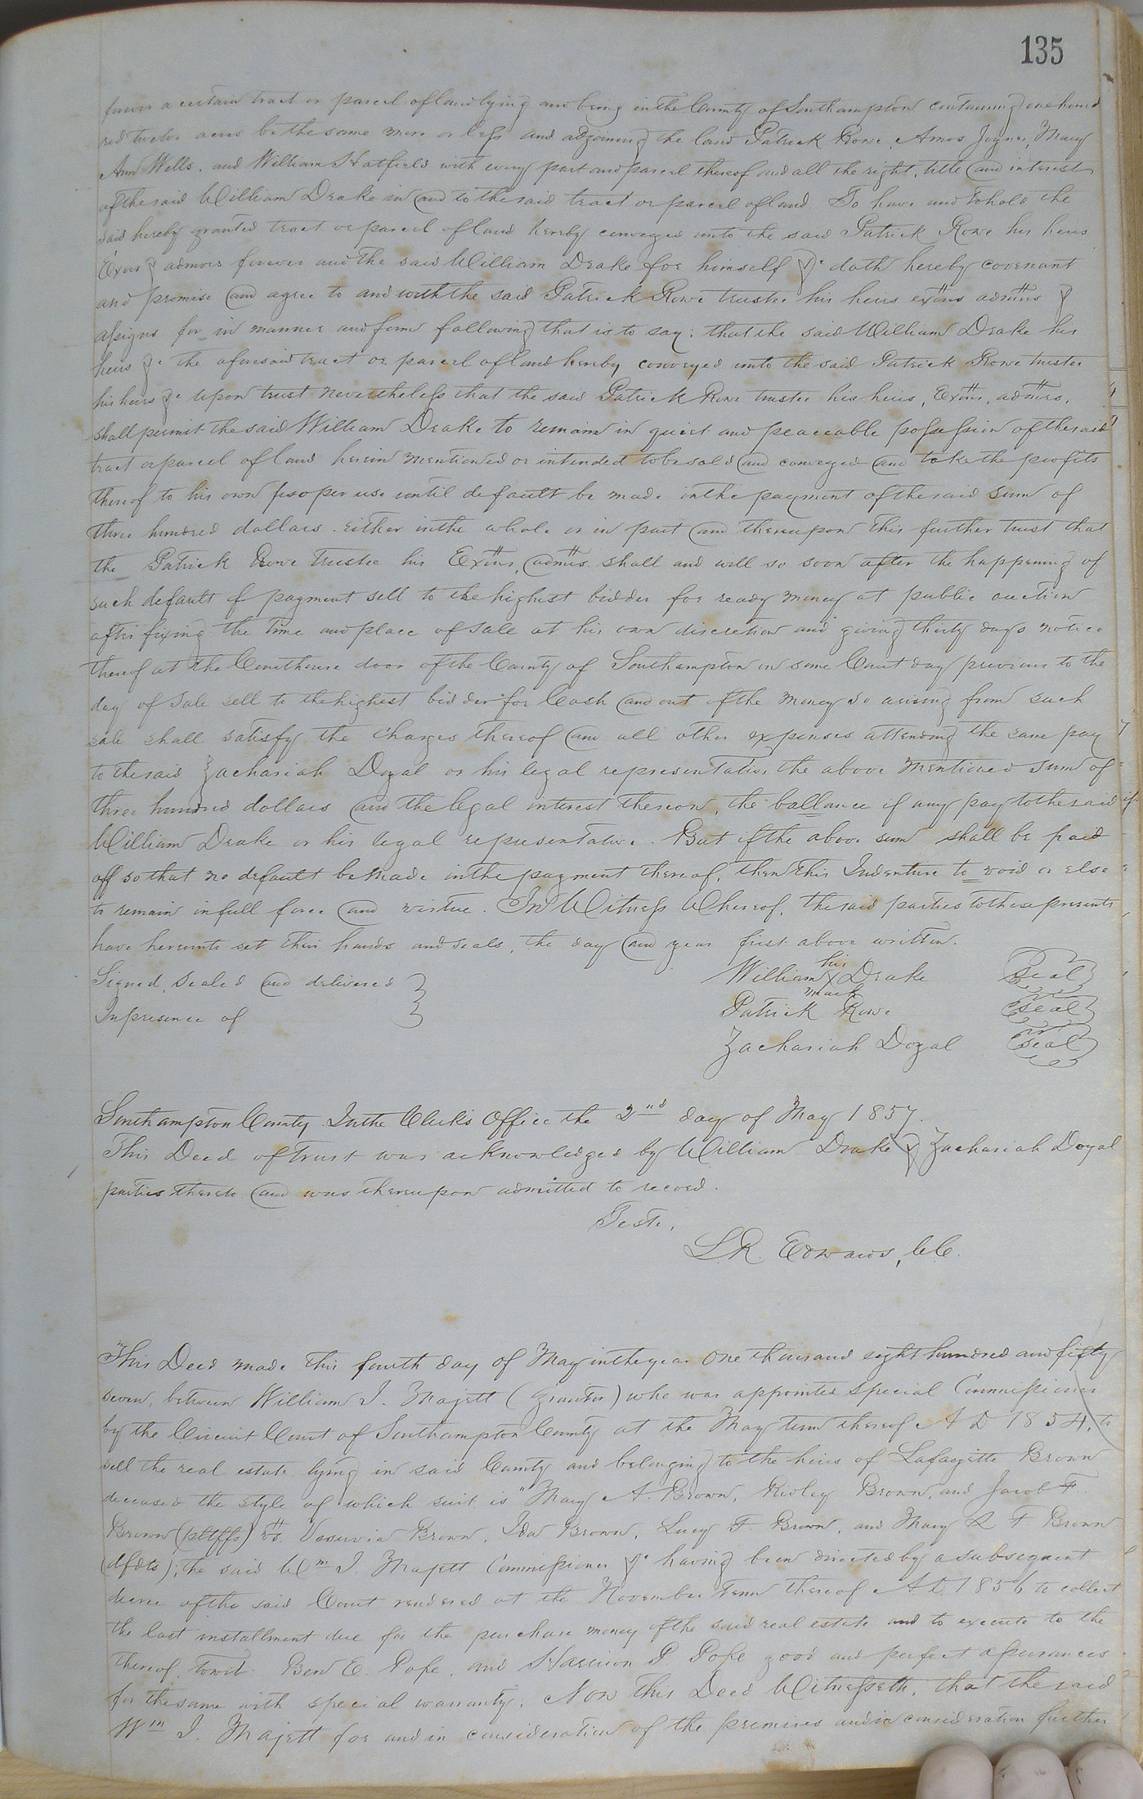 135
forever a certain tract or parcel of land lying and being in the County of Southampton containing one hund
red twelve acres be the same more or less and adjoining the land Patrick Rowe, Amos Joyner, Mary
Ann Wells, and William Hatfield with every part and parcel thereof and all the right, title and interest
of the said William Drake in and to the said tract or parcel of land To have and to hold the
said hereby granted tract or parcel of land hereby conveyed unto the said Patrick Rowe his heirs
Exors & admors forever and the said William Drake for himself &c doth hereby covenant
and promise and agree to and with the said Patrick Rowe trustee his heirs extrs admtrs &
assigns for in manner and form following that is to say: that the said William Drake his
heirs &c the aforesaid tract or parcel of land hereby conveyed unto the said Patrick Rowe trustee
his heirs &c upon trust nevertheless that the said Patrick Rowe trustee his heirs, Extrs, admtrs,
shall permit the said William Drake to remain in quiet and peaceable possession of the said
tract or parcel of land herein mentioned or intended to be sold and conveyed and take the profits
thereof to his own proper use until default be made in the payment of the said sum of
three hundred dollars either in the whole or in part and thereupon this further trust that
the Patrick Rowe trustee his Extrs, admtrs. shall and will so soon after the happening of
such default of payment sell to the highest bidder for ready money at public auction
after fixing the time and place of sale at his own discretion and giving thirty days notice
thereof at the Courthouse door of the County of Southampton on some Court day previous to the
day of sale sell to the highest bidder for Cash and out of the money so arising from such
sale shall satisfy the charges thereof and all other expenses attending the same pay
to the said Zachariah Doyal or his legal representative, the above mentioned sum of
three hundred dollars and the legal interest thereon, the ballance if any pay to the said
William Drake or his legal representative. But if the above sum shall be paid
off so that no default be made in the payment thereof, then this Indenture to void or else
to remain in full force and virtue. In Witness Whereof, the said parties to these presents
have hereunto set their hands and seals, the day and year first above written.
Signed, Sealed and delivered } William his X mark Drake Seal
In presence of } Patrick Rowe Seal
Zachariah Doyal Seal
Southampton County In the Clerk's Office the 2nd day of May 1857.
This Deed of trust was acknowledged by William Drake & Zachariah Doyal
parties thereto and was thereupon admitted to record.
Teste,
L R. Edwards, C.C.
This Deed made this fourth day of May in the year One thousand eight hundred and fifty
seven, between William J. Majett (grantor) who was appointed special Commissioner
by the Circuit Court of Southampton County at the May term thereof A D 1854, to
sell the real estate lying in said County and belonging to the heirs of Lafayette Brown
deceased the style of which suit is "Mary A. Brown, Ridley Brown, and Jacob F.
Brown (pltffs) vs. Vesuvia Brown, Ida Brown, Lucy F Brown, and Mary L F Brown
(dfdts); the said Wm J. Majett Commissioner &c having been directed by a subsequent
decree of the said Court rendered at the November term thereof A D. 1856 to collect
the last installment due for the purchase money of the said real estate and to execute to the
thereof, towit: Benj E. Pope, and Harrison P Pope good and perfect assurances
for the same with special warranty. Now this Deed Witnesseth, that the said
Wm J. Majett for and in consideration of the premises and in consideration further